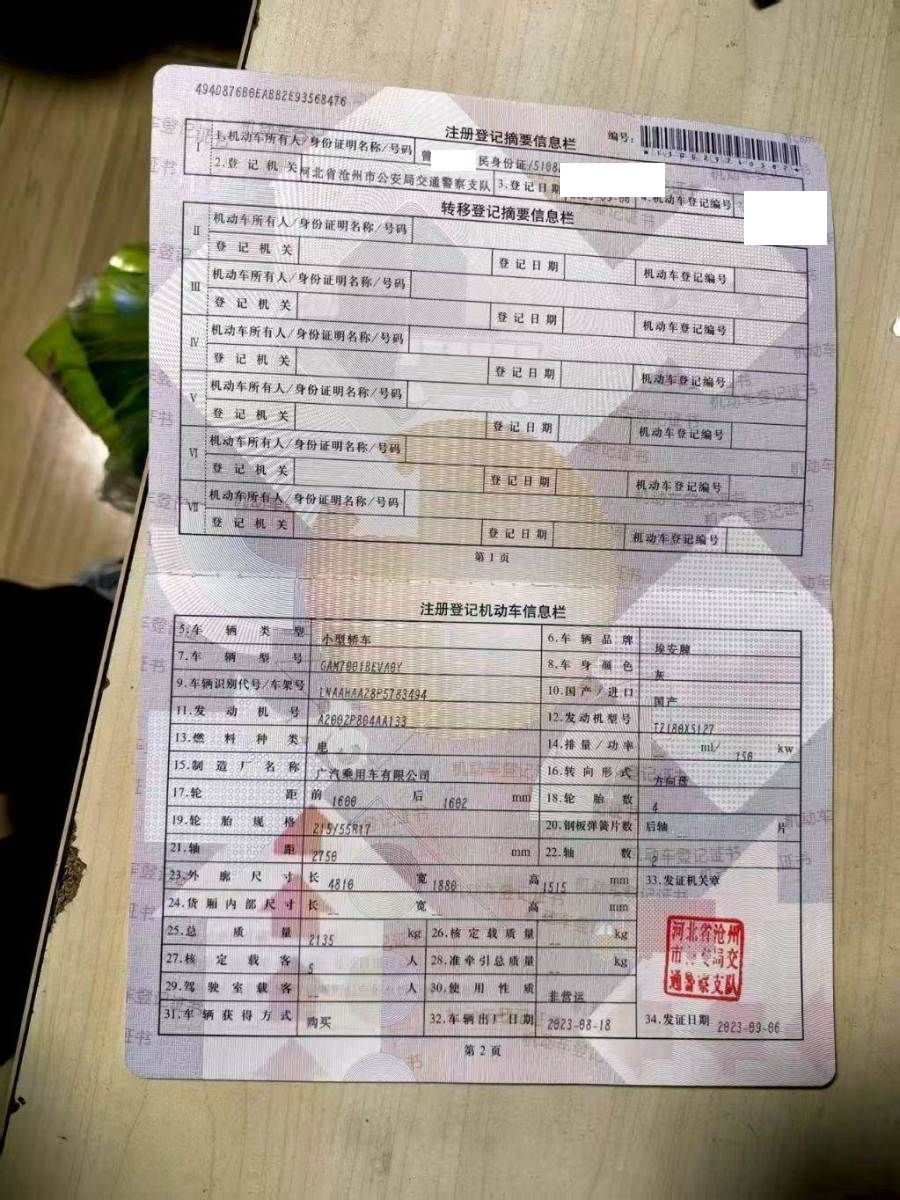 494D876B0EABB2E93568476
注册登记摘要信息栏 编号:
I 1.机动车所有人/身份证明名称/号码 曾 民身份证/5108
2.登记机关 河北省沧州市公安局交通警察支队 3.登记日期 4.机动车登记编号
转移登记摘要信息栏
II 机动车所有人/身份证明名称/号码
登记机关 登记日期 机动车登记编号
III 机动车所有人/身份证明名称/号码
登记机关 登记日期 机动车登记编号
IV 机动车所有人/身份证明名称/号码
登记机关 登记日期 机动车登记编号
V 机动车所有人/身份证明名称/号码
登记机关 登记日期 机动车登记编号
VI 机动车所有人/身份证明名称/号码
登记机关 登记日期 机动车登记编号
VII 机动车所有人/身份证明名称/号码
登记机关 登记日期 机动车登记编号
第1页
注册登记机动车信息栏
5.车辆类型 小型轿车 6.车辆品牌 埃安牌
7.车辆型号 GAM7001BEVA0Y 8.车身颜色 灰
9.车辆识别代号/车架号 LNAAHAA28P5783494 10.国产/进口 国产
11.发动机号 A2002P804AA133 12.发动机型号 TZ180XS127
13.燃料种类 电 14.排量/功率 ml/ 150 kw
15.制造厂名称 广汽乘用车有限公司 16.转向形式 方向盘
17.轮距 前 1600 后 1602 mm 18.轮胎数 4
19.轮胎规格 215/55R17 20.钢板弹簧片数 后轴 片
21.轴距 2750 mm 22.轴数 2
23.外廓尺寸 长 4810 宽 1880 高 1515 mm 33.发证机关章
24.货厢内部尺寸 长 -- 宽 -- 高 -- mm
25.总质量 2135 kg 26.核定载质量 -- kg
27.核定载客 5 人 28.准牵引总质量 -- kg
29.驾驶室载客 -- 人 30.使用性质 非营运
31.车辆获得方式 购买 32.车辆出厂日期 2023-08-18 34.发证日期 2023-09-06
河北省沧州
市公安局交
通警察支队
第2页